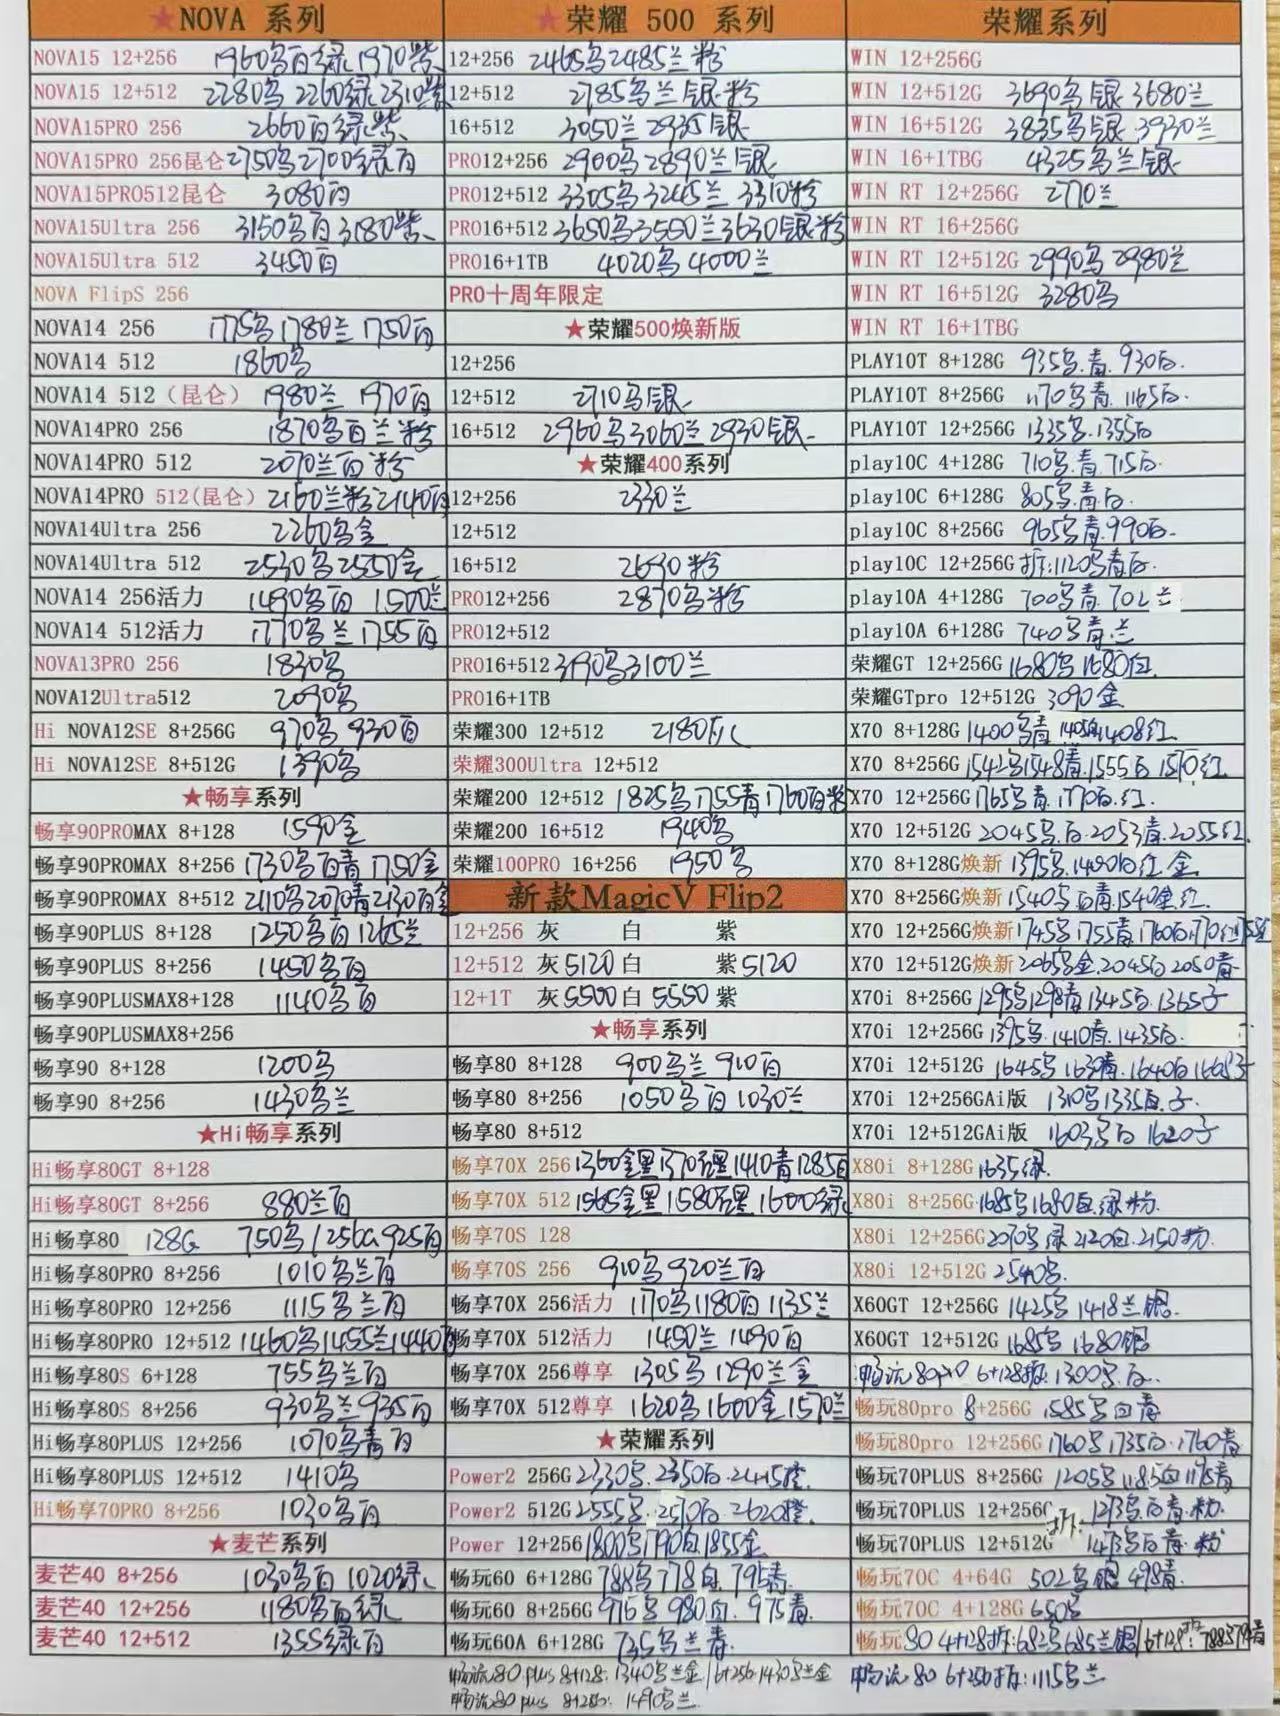 ★NOVA 系列
NOVA15 12+256 1960乌白绿 1970紫
NOVA15 12+512 2280乌 2260绿 2310紫
NOVA15PRO 256 2660白绿紫
NOVA15PRO 256昆仑 2750乌 2700绿白
NOVA15PRO512昆仑 3080白
NOVA15Ultra 256 3150乌白 3180紫
NOVA15Ultra 512 3450白
NOVA FlipS 256
NOVA14 256 1775乌 1780兰 1750白
NOVA14 512 1860乌
NOVA14 512（昆仑） 1980兰 1970白
NOVA14PRO 256 1870乌白兰粉
NOVA14PRO 512 2070兰白粉
NOVA14PRO 512(昆仑) 2160兰粉 2140白
NOVA14Ultra 256 2260乌金
NOVA14Ultra 512 2530乌 2550金
NOVA14 256活力 1490乌白 1500兰
NOVA14 512活力 1770乌兰 1755白
NOVA13PRO 256 1830乌
NOVA12Ultra512 2090乌
Hi NOVA12SE 8+256G 970乌 930白
Hi NOVA12SE 8+512G 1390乌
★畅享系列
畅享90PROMAX 8+128 1590金
畅享90PROMAX 8+256 1730乌白青 1750金
畅享90PROMAX 8+512 2110乌 2070青 2130白金
畅享90PLUS 8+128 1250乌白 1265兰
畅享90PLUS 8+256 1450乌白
畅享90PLUSMAX8+128 1140乌白
畅享90PLUSMAX8+256
畅享90 8+128 1200乌
畅享90 8+256 1430乌兰
★Hi畅享系列
Hi畅享80GT 8+128
Hi畅享80GT 8+256 880兰白
Hi畅享80 128G 750乌/256G 925白
Hi畅享80PRO 8+256 1010乌兰白
Hi畅享80PRO 12+256 1115乌兰白
Hi畅享80PRO 12+512 1460乌 1455兰 1440白
Hi畅享80S 6+128 755乌兰白
Hi畅享80S 8+256 930乌兰 935白
Hi畅享80PLUS 12+256 1070乌青白
Hi畅享80PLUS 12+512 1410乌
Hi畅享70PRO 8+256 1030乌白
★麦芒系列
麦芒40 8+256 1030乌白 1020绿
麦芒40 12+256 1180乌白绿
麦芒40 12+512 1355绿白
★荣耀 500 系列
12+256 2465乌 2485兰粉
12+512 2785乌兰银粉
16+512 3050兰 2935银
PRO12+256 2900乌 2890兰银
PRO12+512 3305乌 3245兰 3310粉
PRO16+512 3650乌 3550兰 3630银粉
PRO16+1TB 4020乌 4000兰
PRO十周年限定
★荣耀500焕新版
12+256
12+512 2710乌银
16+512 2960乌 3060兰 2930银
★荣耀400系列
12+256 2330兰
12+512
16+512 2690粉
PRO12+256 2870乌粉
PRO12+512
PRO16+512 3190乌 3100兰
PRO16+1TB
荣耀300 12+512 2180灰
荣耀300Ultra 12+512
荣耀200 12+512 1825乌 1755青 1760白粉
荣耀200 16+512 1940乌
荣耀100PRO 16+256 1950乌
新款MagicV Flip2
12+256 灰 白 紫
12+512 灰 5120 白 紫 5120
12+1T 灰 5500 白 5550 紫
★畅享系列
畅享80 8+128 900乌兰 910白
畅享80 8+256 1050乌白 1030兰
畅享80 8+512
畅享70X 256 1360金黑 1370 1410青 1285白
畅享70X 512 1565金黑 1580 1600绿
畅享70S 128
畅享70S 256 910乌 920兰白
畅享70X 256活力 1170乌 1180白 1135兰
畅享70X 512活力 1450兰 1490白
畅享70X 256尊享 1305乌 1290兰金
畅享70X 512尊享 1620乌 1600金 1570兰
★荣耀系列
Power2 256G 2330乌. 2350白. 2445橙
Power2 512G 2555乌. 2570白 2620橙.
Power 12+256 1800乌 1790白 1855金
畅玩60 6+128G 788乌 778白 795青.
畅玩60 8+256G 976乌 980白. 975青.
畅玩60A 6+128G 735乌兰青.
畅玩80 plus 8+128: 1340乌兰金/6+256 1430乌兰金
畅玩80 plus 8+256: 1490乌兰.
荣耀系列
WIN 12+256G
WIN 12+512G 3690乌银 3680兰
WIN 16+512G 3835乌银 3930兰
WIN 16+1TBG 4325乌兰银
WIN RT 12+256G 2770兰
WIN RT 16+256G
WIN RT 12+512G 2990乌 2980兰
WIN RT 16+512G 3280乌
WIN RT 16+1TBG
PLAY10T 8+128G 935乌.青. 930白.
PLAY10T 8+256G 1170乌青. 1165白.
PLAY10T 12+256G 1335乌. 1355白
play10C 4+128G 710乌.青. 715白.
play10C 6+128G 805乌.青.白.
play10C 8+256G 965乌青. 990白.
play10C 12+256G 拆:1120乌青白.
play10A 4+128G 700乌青. 702兰
play10A 6+128G 740乌青.兰
荣耀GT 12+256G 1680乌 1680白.
荣耀GTpro 12+512G 3090金
X70 8+128G 1400乌青 1405白 1408红.
X70 8+256G 1542乌 1548青. 1555白 1570红.
X70 12+256G 1765乌青. 1770白.红.
X70 12+512G 2045乌.白. 2053青. 2055红.
X70 8+128G焕新 1395乌. 1400白红.金
X70 8+256G焕新 1540乌.白青. 1540金.红.
X70 12+256G焕新 1745乌. 1755青. 1760白. 1770红
X70 12+512G焕新 2065乌金. 2045白 2050青
X70i 8+256G 1295乌 1298青 1345白. 1365子
X70i 12+256G 1395乌. 1410青. 1435白.
X70i 12+512G 1645乌. 1639青. 1640白 1668子
X70i 12+256GAi版 1310乌 1335白.子.
X70i 12+512GAi版 1603乌白 1620子
X80i 8+128G 1635绿.
X80i 8+256G 1685乌 1680白.绿粉.
X80i 12+256G 2070乌绿 2120白. 2150粉.
X80i 12+512G 2540乌.
X60GT 12+256G 1425乌 1418兰银.
X60GT 12+512G 1685乌 1680银
畅玩80pro 6+128拆: 1300乌.白.
畅玩80pro 8+256G 1585乌白青
畅玩80pro 12+256G 1760乌. 1735白. 1760青
畅玩70PLUS 8+256G 1205乌 1185白 1175青
畅玩70PLUS 12+256G 拆. 1273乌.白青.粉.
畅玩70PLUS 12+512G 1473乌白青.粉
畅玩70C 4+64G 502乌银 498青.
畅玩70C 4+128G 650乌
畅玩80 4+128拆:682乌 685兰银/6+128拆:788乌
畅玩80 6+256拆:1115乌兰